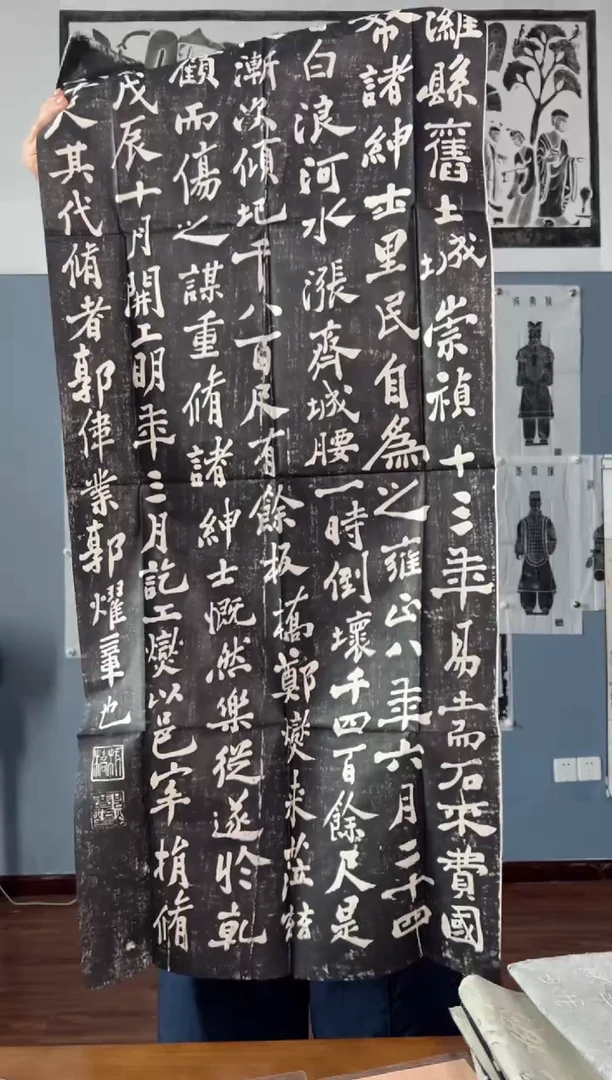 濰縣舊土城崇禎十三年易土而石来費國
帑諸紳士里民自為之雍正八年六月二十四
白浪河水漲齊城腰一時倒壞千四百餘尺是
漸次傾圮千八百尺有餘板橋鄭燮来莅茲
顧而傷之謀重脩諸紳士慨然樂從遂於乾
戊辰十月開工明年三月訖工燮以邑宰捐脩
尺其代脩者郭偉業郭耀章也